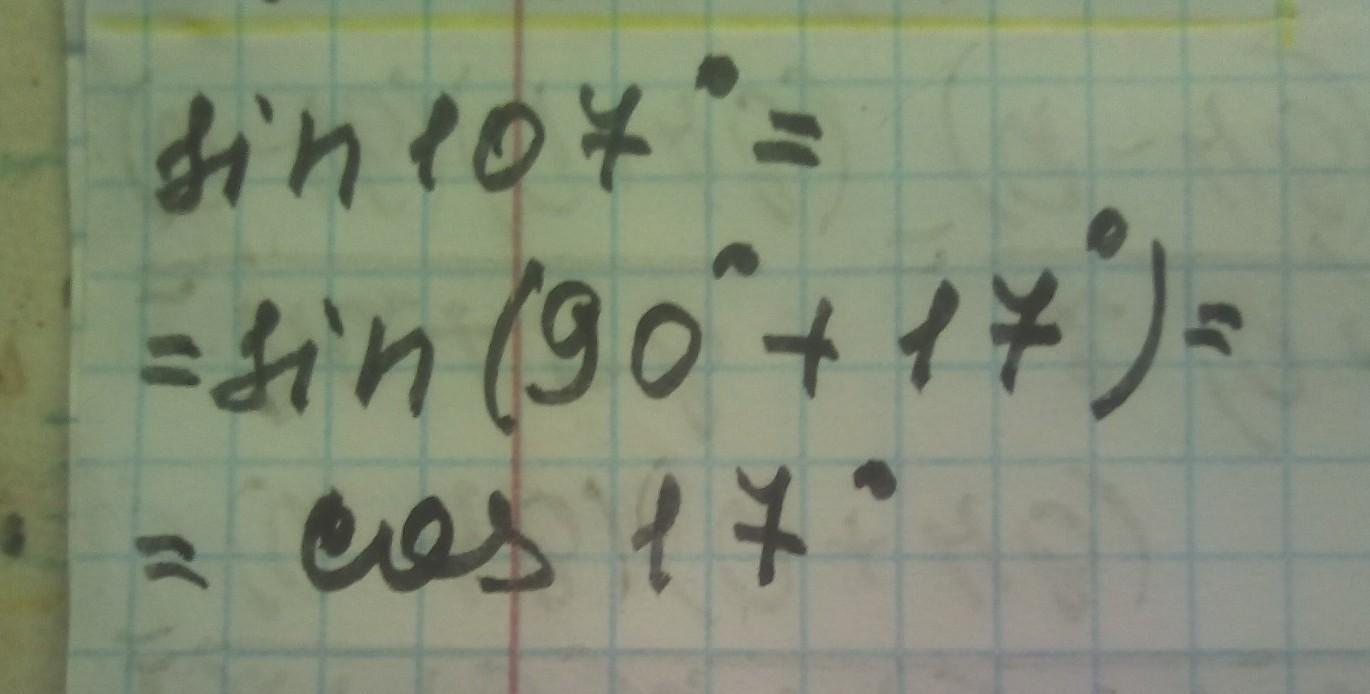 sin 107° =
= sin (90° + 17°) =
= cos 17°